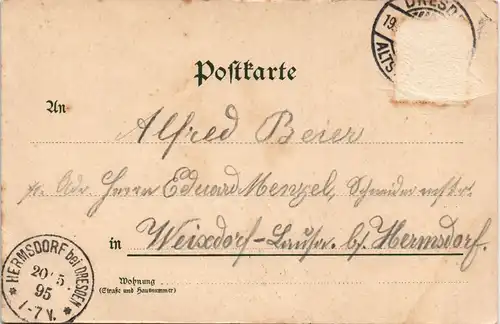 DRESDEN
19
ALTST
Postkarte
An
Alfred Beier
pr. Adr. Herrn Eduard Menzel, Schneidermstr.
in Weixdorf-Lausa. b/ Hermsdorf.
Wohnung
(Straße und Hausnummer)
HERMSDORF bei DRESDEN
20 5
95
1-7 V.